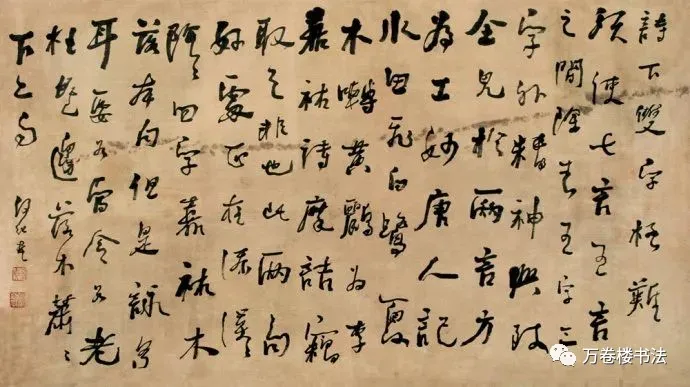 詩下雙字極難
須使七言五言
之間除去五字三
字外精神興致
全見於兩言方
為工妙唐人記
水田飛白鷺夏
木囀黃鸝為李
嘉祐詩摩詰竊
取之非也此兩句
好處正在添漠〻
陰〻四字嘉祐本
本句但是詠景
耳要當令如老
杜無邊落木蕭〻
下之句
万卷楼书法